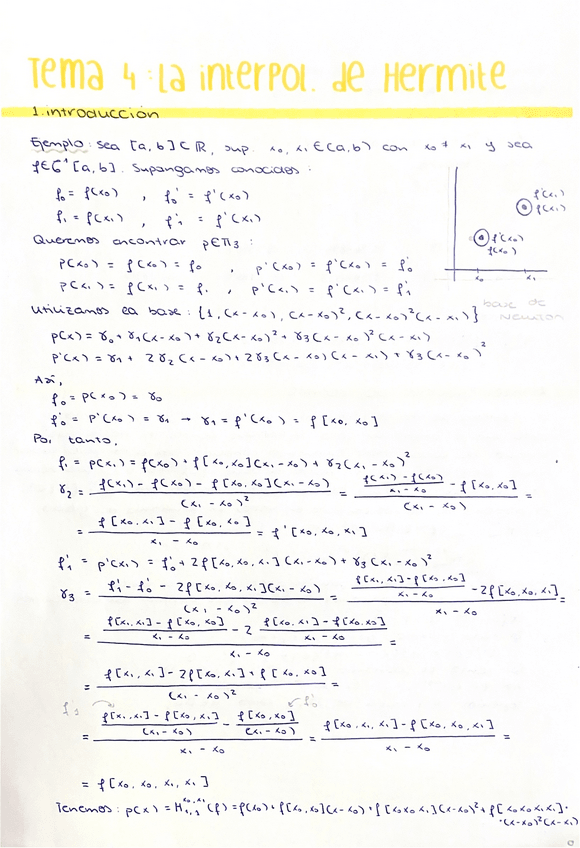 Tema 4: La interpol. de Hermite
1. introducción
Ejemplo: sea [a,b]⊂ℝ, sup. x₀, x₁ ∈(a,b) con x₀ ≠ x₁ y sea
f∈C¹[a,b]. Supongamos conocidos:
f₀ = f(x₀) , f₀' = f'(x₀)
f₁ = f(x₁) , f₁' = f'(x₁)
f'(x₁)
f(x₁)
f'(x₀)
f(x₀)
x₀ x₁
Queremos encontrar p∈Π₃:
p(x₀) = f(x₀) = f₀ , p'(x₀) = f'(x₀) = f₀'
p(x₁) = f(x₁) = f₁ , p'(x₁) = f'(x₁) = f₁'
Utilizamos la base: {1, (x-x₀), (x-x₀)², (x-x₀)²(x-x₁)} base de Newton
p(x) = γ₀ + γ₁(x-x₀) + γ₂(x-x₀)² + γ₃(x-x₀)²(x-x₁)
p'(x) = γ₁ + 2γ₂(x-x₀) + 2γ₃(x-x₀)(x-x₁) + γ₃(x-x₀)²
Así,
f₀ = p(x₀) = γ₀
f₀' = p'(x₀) = γ₁ → γ₁ = f'(x₀) = f[x₀, x₀]
Por tanto,
f₁ = p(x₁) = f(x₀) + f[x₀,x₀](x₁-x₀) + γ₂(x₁-x₀)²
γ₂ = (f(x₁) - f(x₀) - f[x₀,x₀](x₁-x₀))/(x₁-x₀)² = ((f(x₁)-f(x₀))/(x₁-x₀) - f[x₀,x₀])/(x₁-x₀) =
= (f[x₀,x₁] - f[x₀,x₀])/(x₁-x₀) = f'[x₀,x₀,x₁]
f₁' = p'(x₁) = f₀' + 2f[x₀,x₀,x₁](x₁-x₀) + γ₃(x₁-x₀)²
γ₃ = (f₁' - f₀' - 2f[x₀,x₀,x₁](x₁-x₀))/(x₁-x₀)² = ((f[x₁,x₁]-f[x₀,x₀])/(x₁-x₀) - 2f[x₀,x₀,x₁])/(x₁-x₀) =
= ((f[x₁,x₁] - f[x₀,x₀])/(x₁-x₀) - 2 (f[x₀,x₁] - f[x₀,x₀])/(x₁-x₀))/(x₁-x₀) =
= (f[x₁,x₁] - 2f[x₀,x₁] + f[x₀,x₀])/(x₁-x₀)² =
f'₁ f'₀
= ((f[x₁,x₁] - f[x₀,x₁])/(x₁-x₀) - f[x₀,x₀]/(x₁-x₀))/(x₁-x₀) = (f[x₀,x₁,x₁] - f[x₀,x₀,x₁])/(x₁-x₀) =
= f[x₀, x₀, x₁, x₁]
Tenemos: p(x) = H₁,₁^{x₀,x₁}(f) = f(x₀) + f[x₀,x₀](x-x₀) + f[x₀x₀x₁](x-x₀)² + f[x₀x₀x₁x₁]·
·(x-x₀)²(x-x₁)